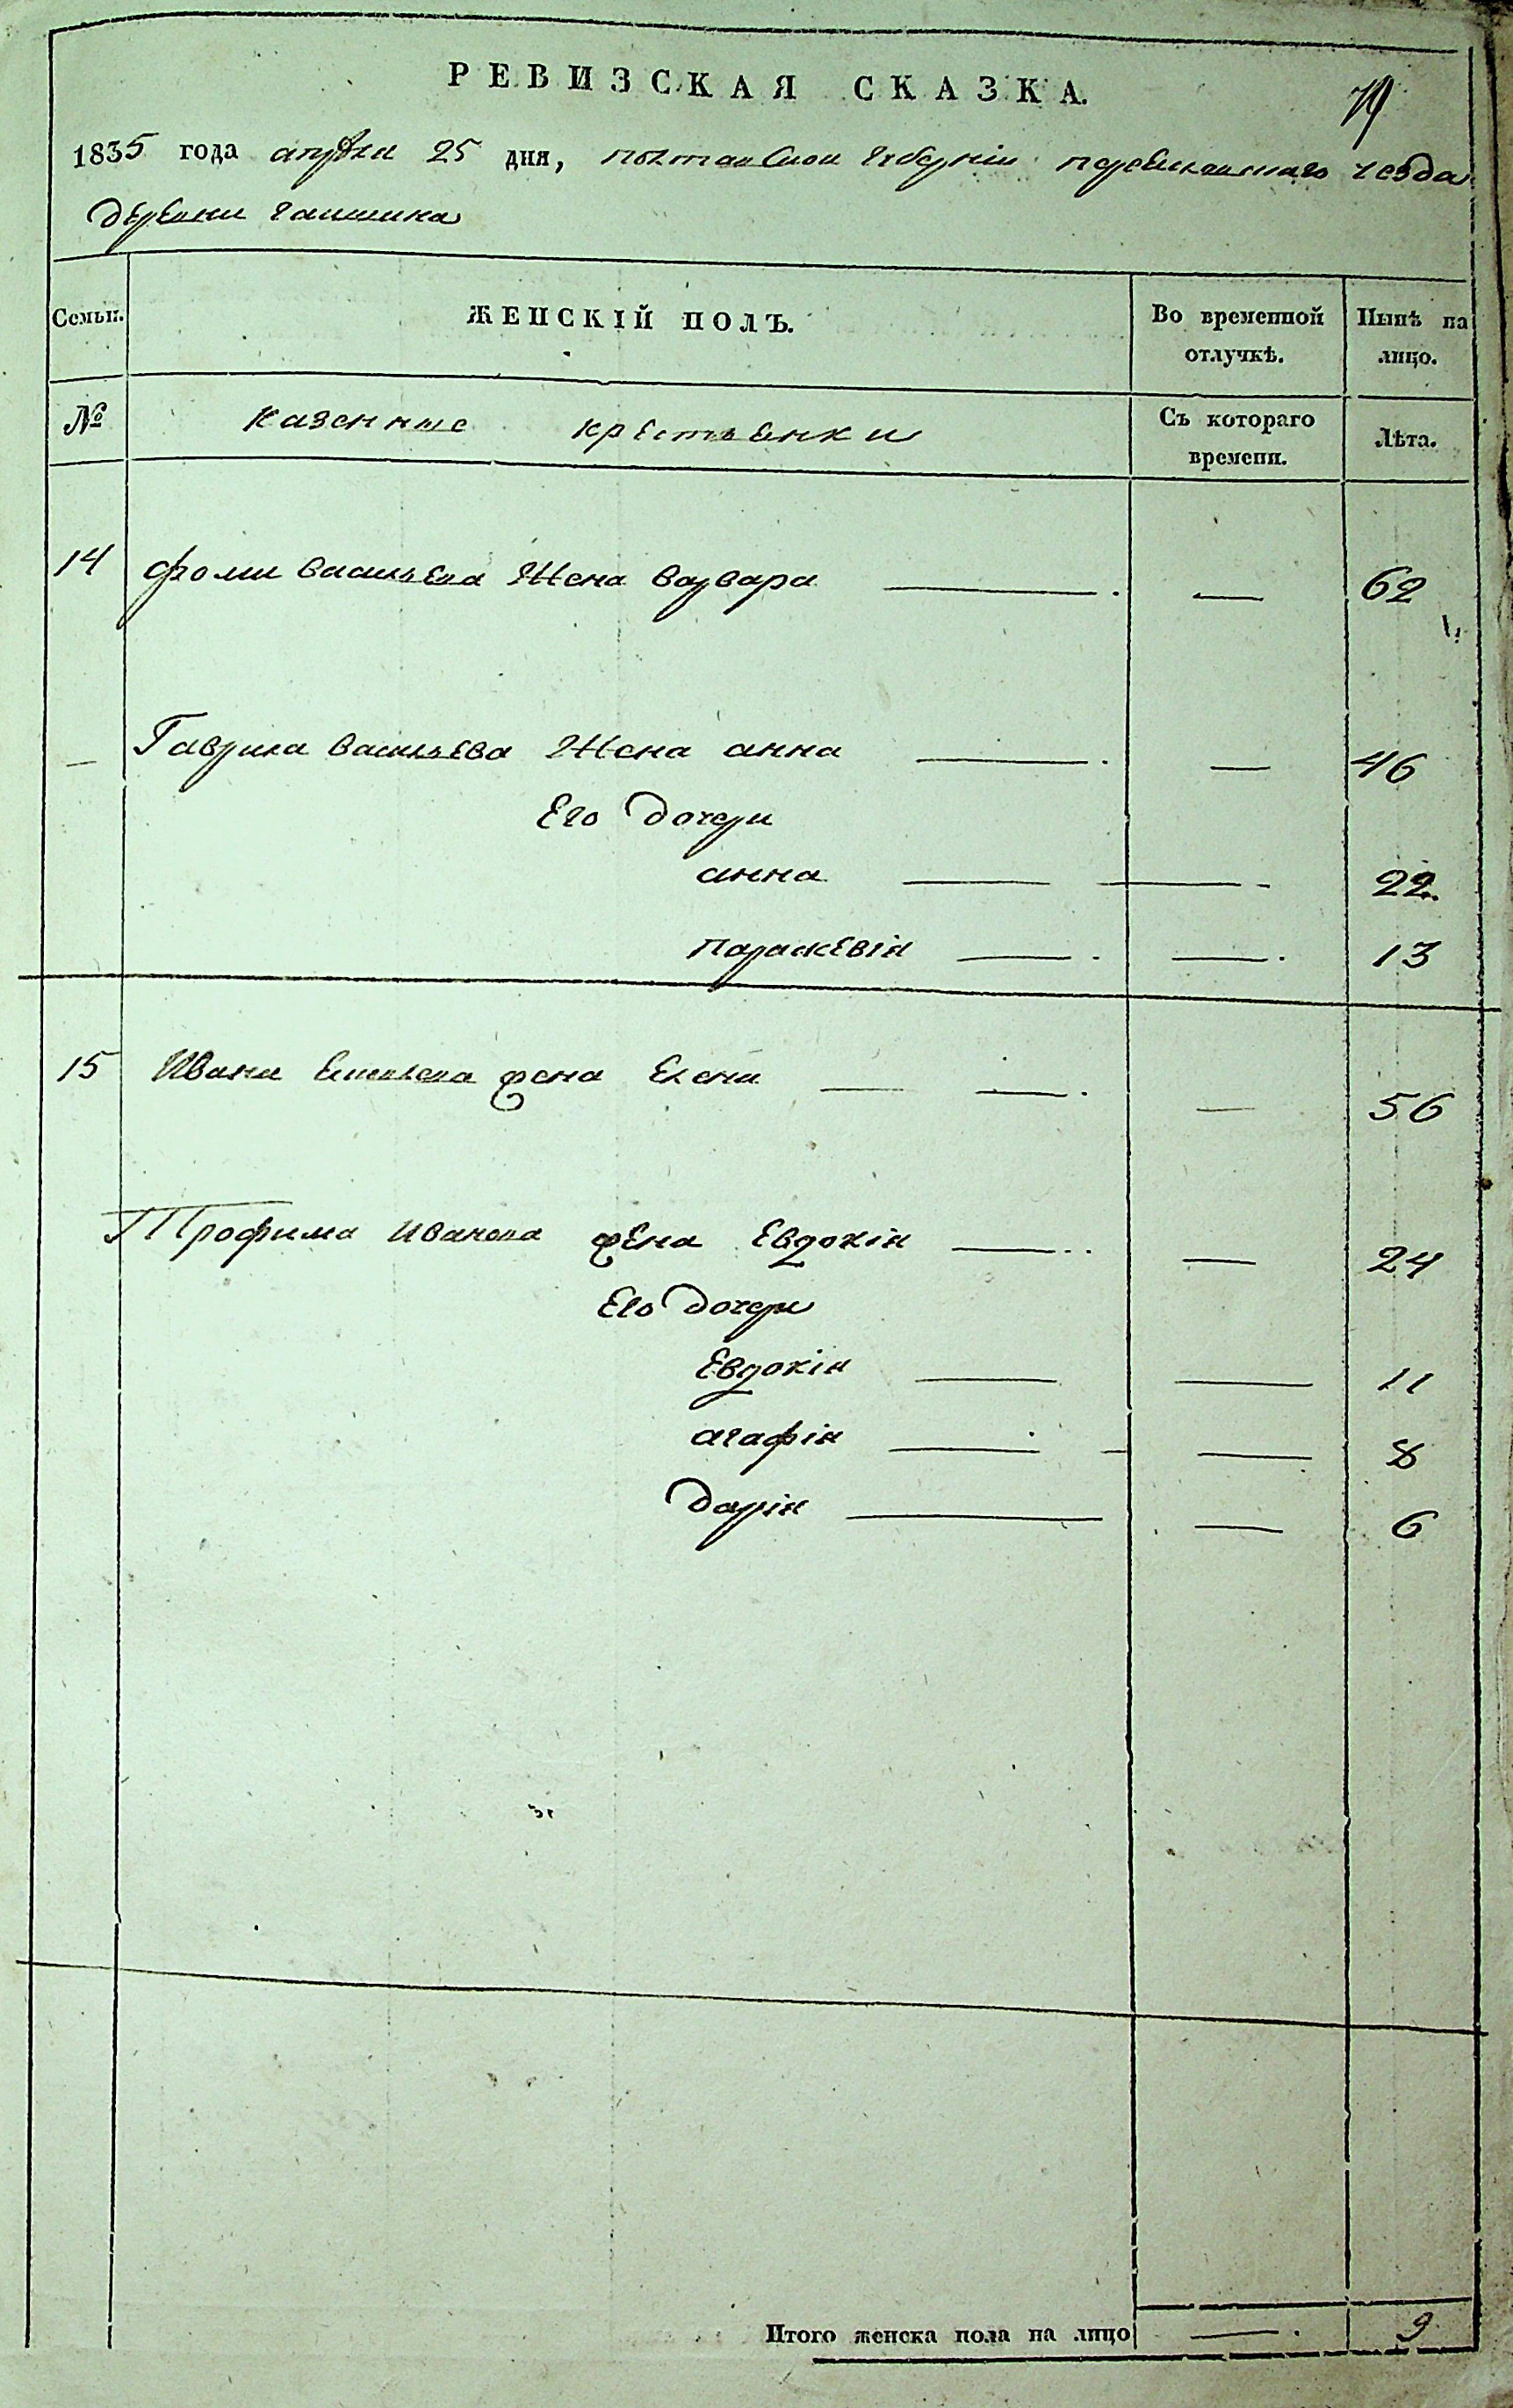 РЕВИЗСКАЯ СКАЗКА.
1835 года апреля 25 дня, полтавской губерніи переяславскаго уезда
деревни
Семьи. ЖЕНСКІЙ ПОЛЪ. Во временной отлучкѣ. Нынѣ на лицо.
№ казенные крестьянки Съ котораго времени. Лѣта.
14 фоми васильева Жена варвара — — 62
— Гаврила васильева Жена анна — — 46
Его дочери
анна — — 22.
параскевія — — 13
15 Ивана жена Елена — — — 56
Трофима иванова жена Евдокія — — 24
Его дочери
Евдокія — — 11
агафія — — 8
дарія — — 6
Итого женска пола на лицо — 9